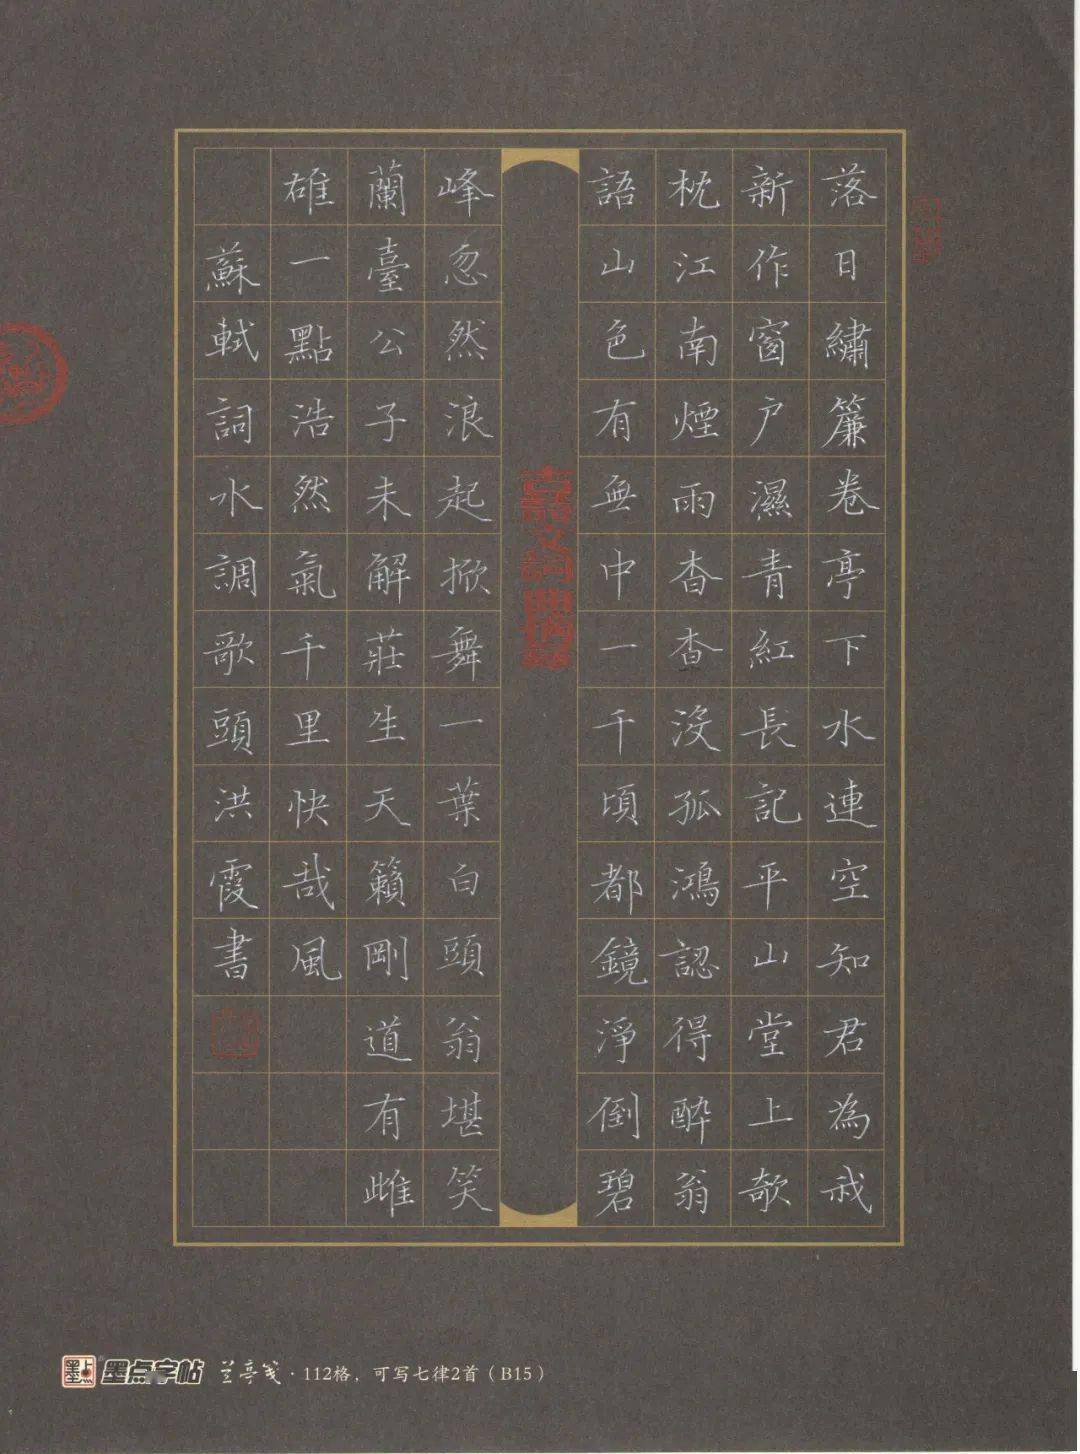 落日繡簾卷亭下水連空知君為我
新作窗户濕青紅長記平山堂上欹
枕江南煙雨杳杳沒孤鴻認得醉翁
語山色有無中一千頃都鏡淨倒碧
峰忽然浪起掀舞一葉白頭翁堪笑
蘭臺公子未解莊生天籟剛道有雌
雄一點浩然氣千里快哉風
蘇軾詞水調歌頭洪霞書
墨点字帖 兰亭笺·112格，可写七律2首（B15）